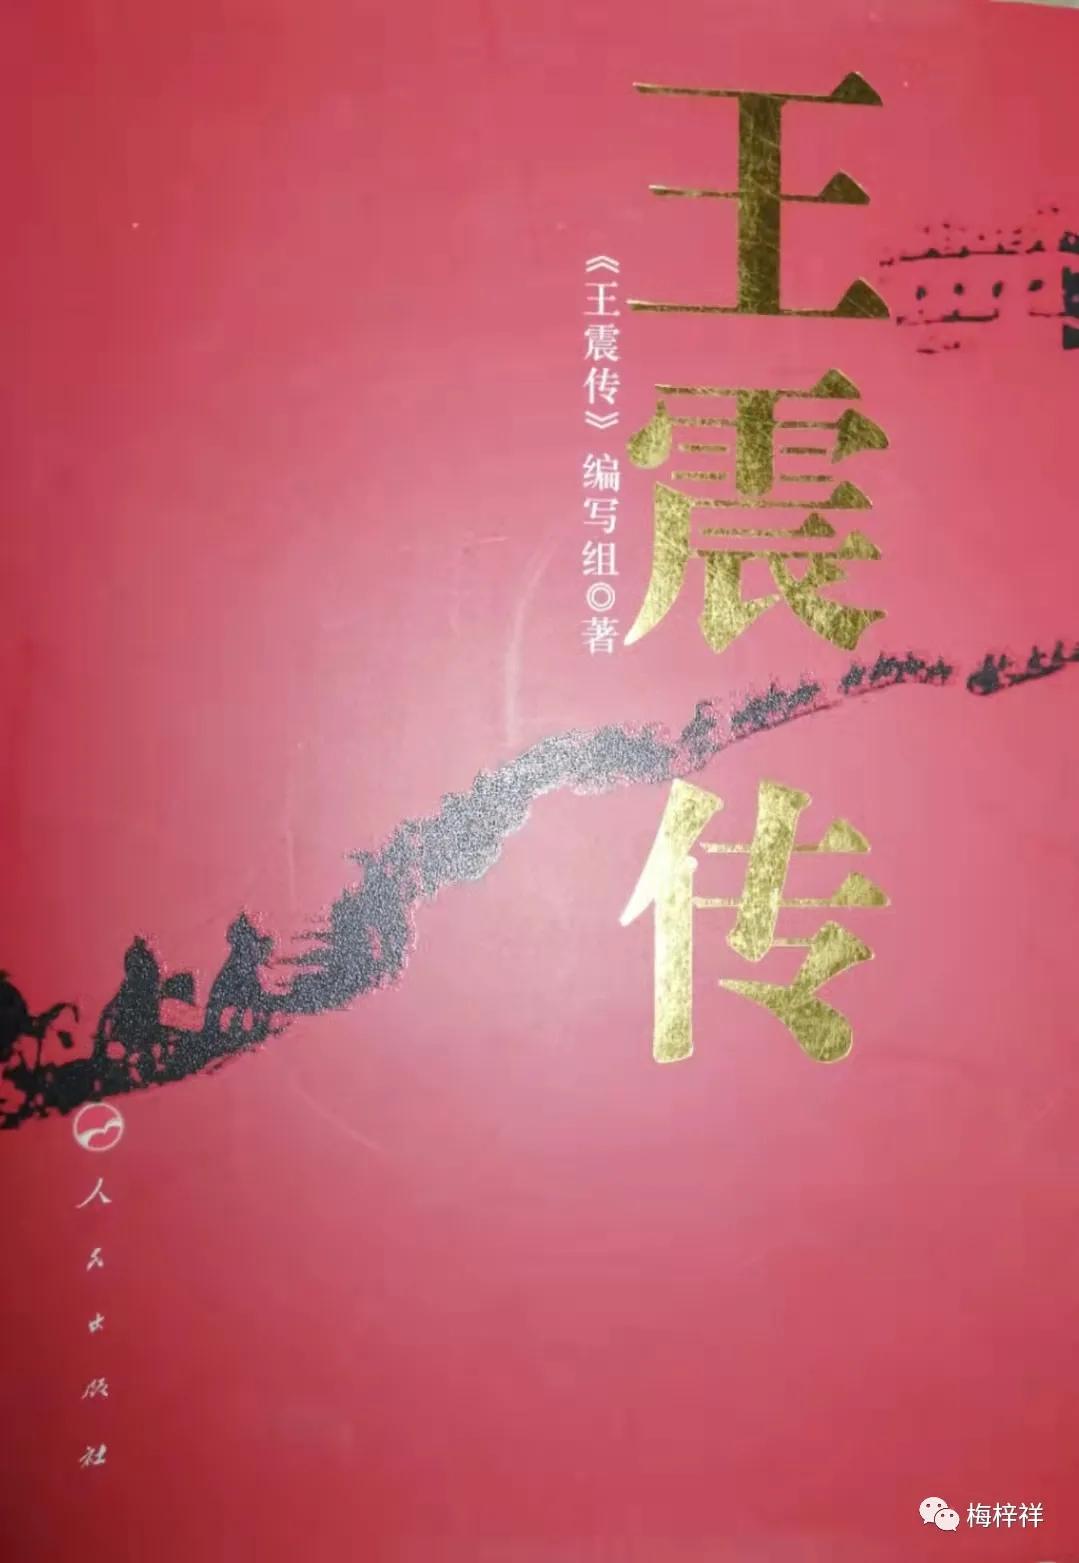 王震传
《王震传》编写组◎著
人民出版社
梅梓祥